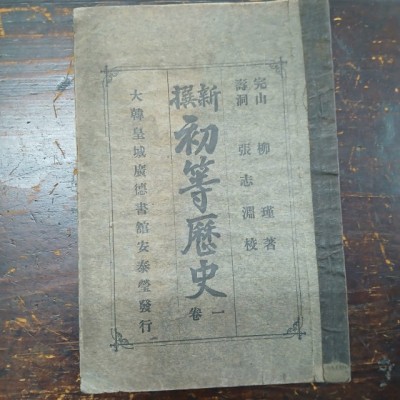 完山 柳瑾著
壽洞 張志淵校
新撰
初等歷史
一卷
大韓皇城廣德書館安泰瑩發行